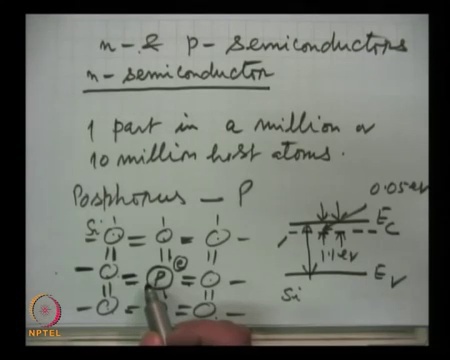 n- & p- semiconductors
n- semiconductor
1 part in a million or
10 million host atoms.
Posphorus - P
0.05 eV
Ec
Si
1.1 eV
e
P
Ev
Si
NPTEL